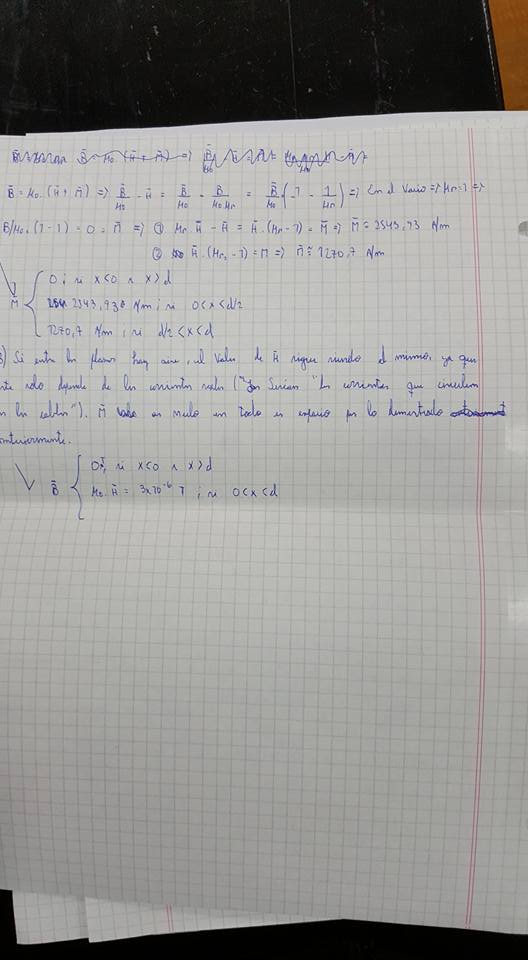 B̄ = μ₀ · (H̄ + M̄) =>
B̄ = μ₀ · (H̄ + M̄) => B̄/μ₀ - H̄ = B̄/μ₀ - B̄/(μ₀ μr) = B̄/μ₀ (1 - 1/μr) => En el vacio => μr=1 =>
B/μ₀ · (1-1) = 0 = M̄ => ① μr H̄ - H̄ = H̄ · (μr - 1) = M̄ => M̄ ≅ 2543,93 A/m
② H̄ · (μr₂ - 1) = M => M̄ ≅ 1270,7 A/m
0 ; si x<0 ∧ x>d
M̄ { 2543,938 A/m ; si 0<x<d/2
1270,7 A/m ; si d/2<x<d
) Si entre los planos hay aire, el valor de H̄ sigue siendo el mismo, ya que
solo depende de las corrientes reales ("Las corrientes que circulan
los cables"). M̄ es nulo en todo el espacio por lo demostrado
anteriormente.
0 ; si x<0 ∧ x>d
B̄ { μ₀ · H̄ = 3x10⁻⁶ T ; si 0<x<d